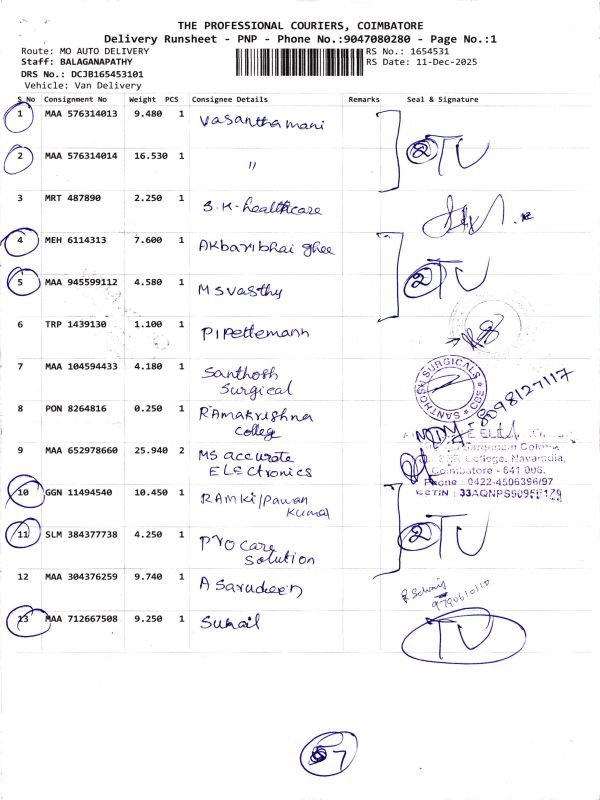 THE PROFESSIONAL COURIERS, COIMBATORE
Delivery Runsheet - PNP - Phone No.:9047080280 - Page No.:1
Route: MO AUTO DELIVERY RS No.: 1654531
Staff: BALAGANAPATHY RS Date: 11-Dec-2025
DRS No.: DCJB165453101
Vehicle: Van Delivery
S No Consignment No Weight PCS Consignee Details Remarks Seal & Signature
1 MAA 576314013 9.480 1 Vasanthamani
2 MAA 576314014 16.530 1 " 2 TU
3 MRT 487890 2.250 1 S.K-healthcare
4 MEH 6114313 7.600 1 Akbaribhai ghee
5 MAA 945599112 4.580 1 MSvasthy 2 TU
6 TRP 1439130 1.100 1 Pipettemann
7 MAA 104594433 4.180 1 Santhosh
Surgical
SANTHOSH SURGICALS * CBE *
8 PON 8264816 0.250 1 Ramakrishna
college
8098127117
9 MAA 652978660 25.940 2 MS accurate
ELectronics
College, Navaindia,
Coimbatore - 641 006.
Phone : 0422-4506396/97
10 GGN 11494540 10.450 1 RAMKi/Pawan
Kumar
GSTIN : 33AQNPS9095E1Z9
11 SLM 384377738 4.250 1 Pro care
Solution
2 TU
12 MAA 304376259 9.740 1 ASarudeen
9790610110
13 MAA 712667508 9.250 1 Suhail TU
7